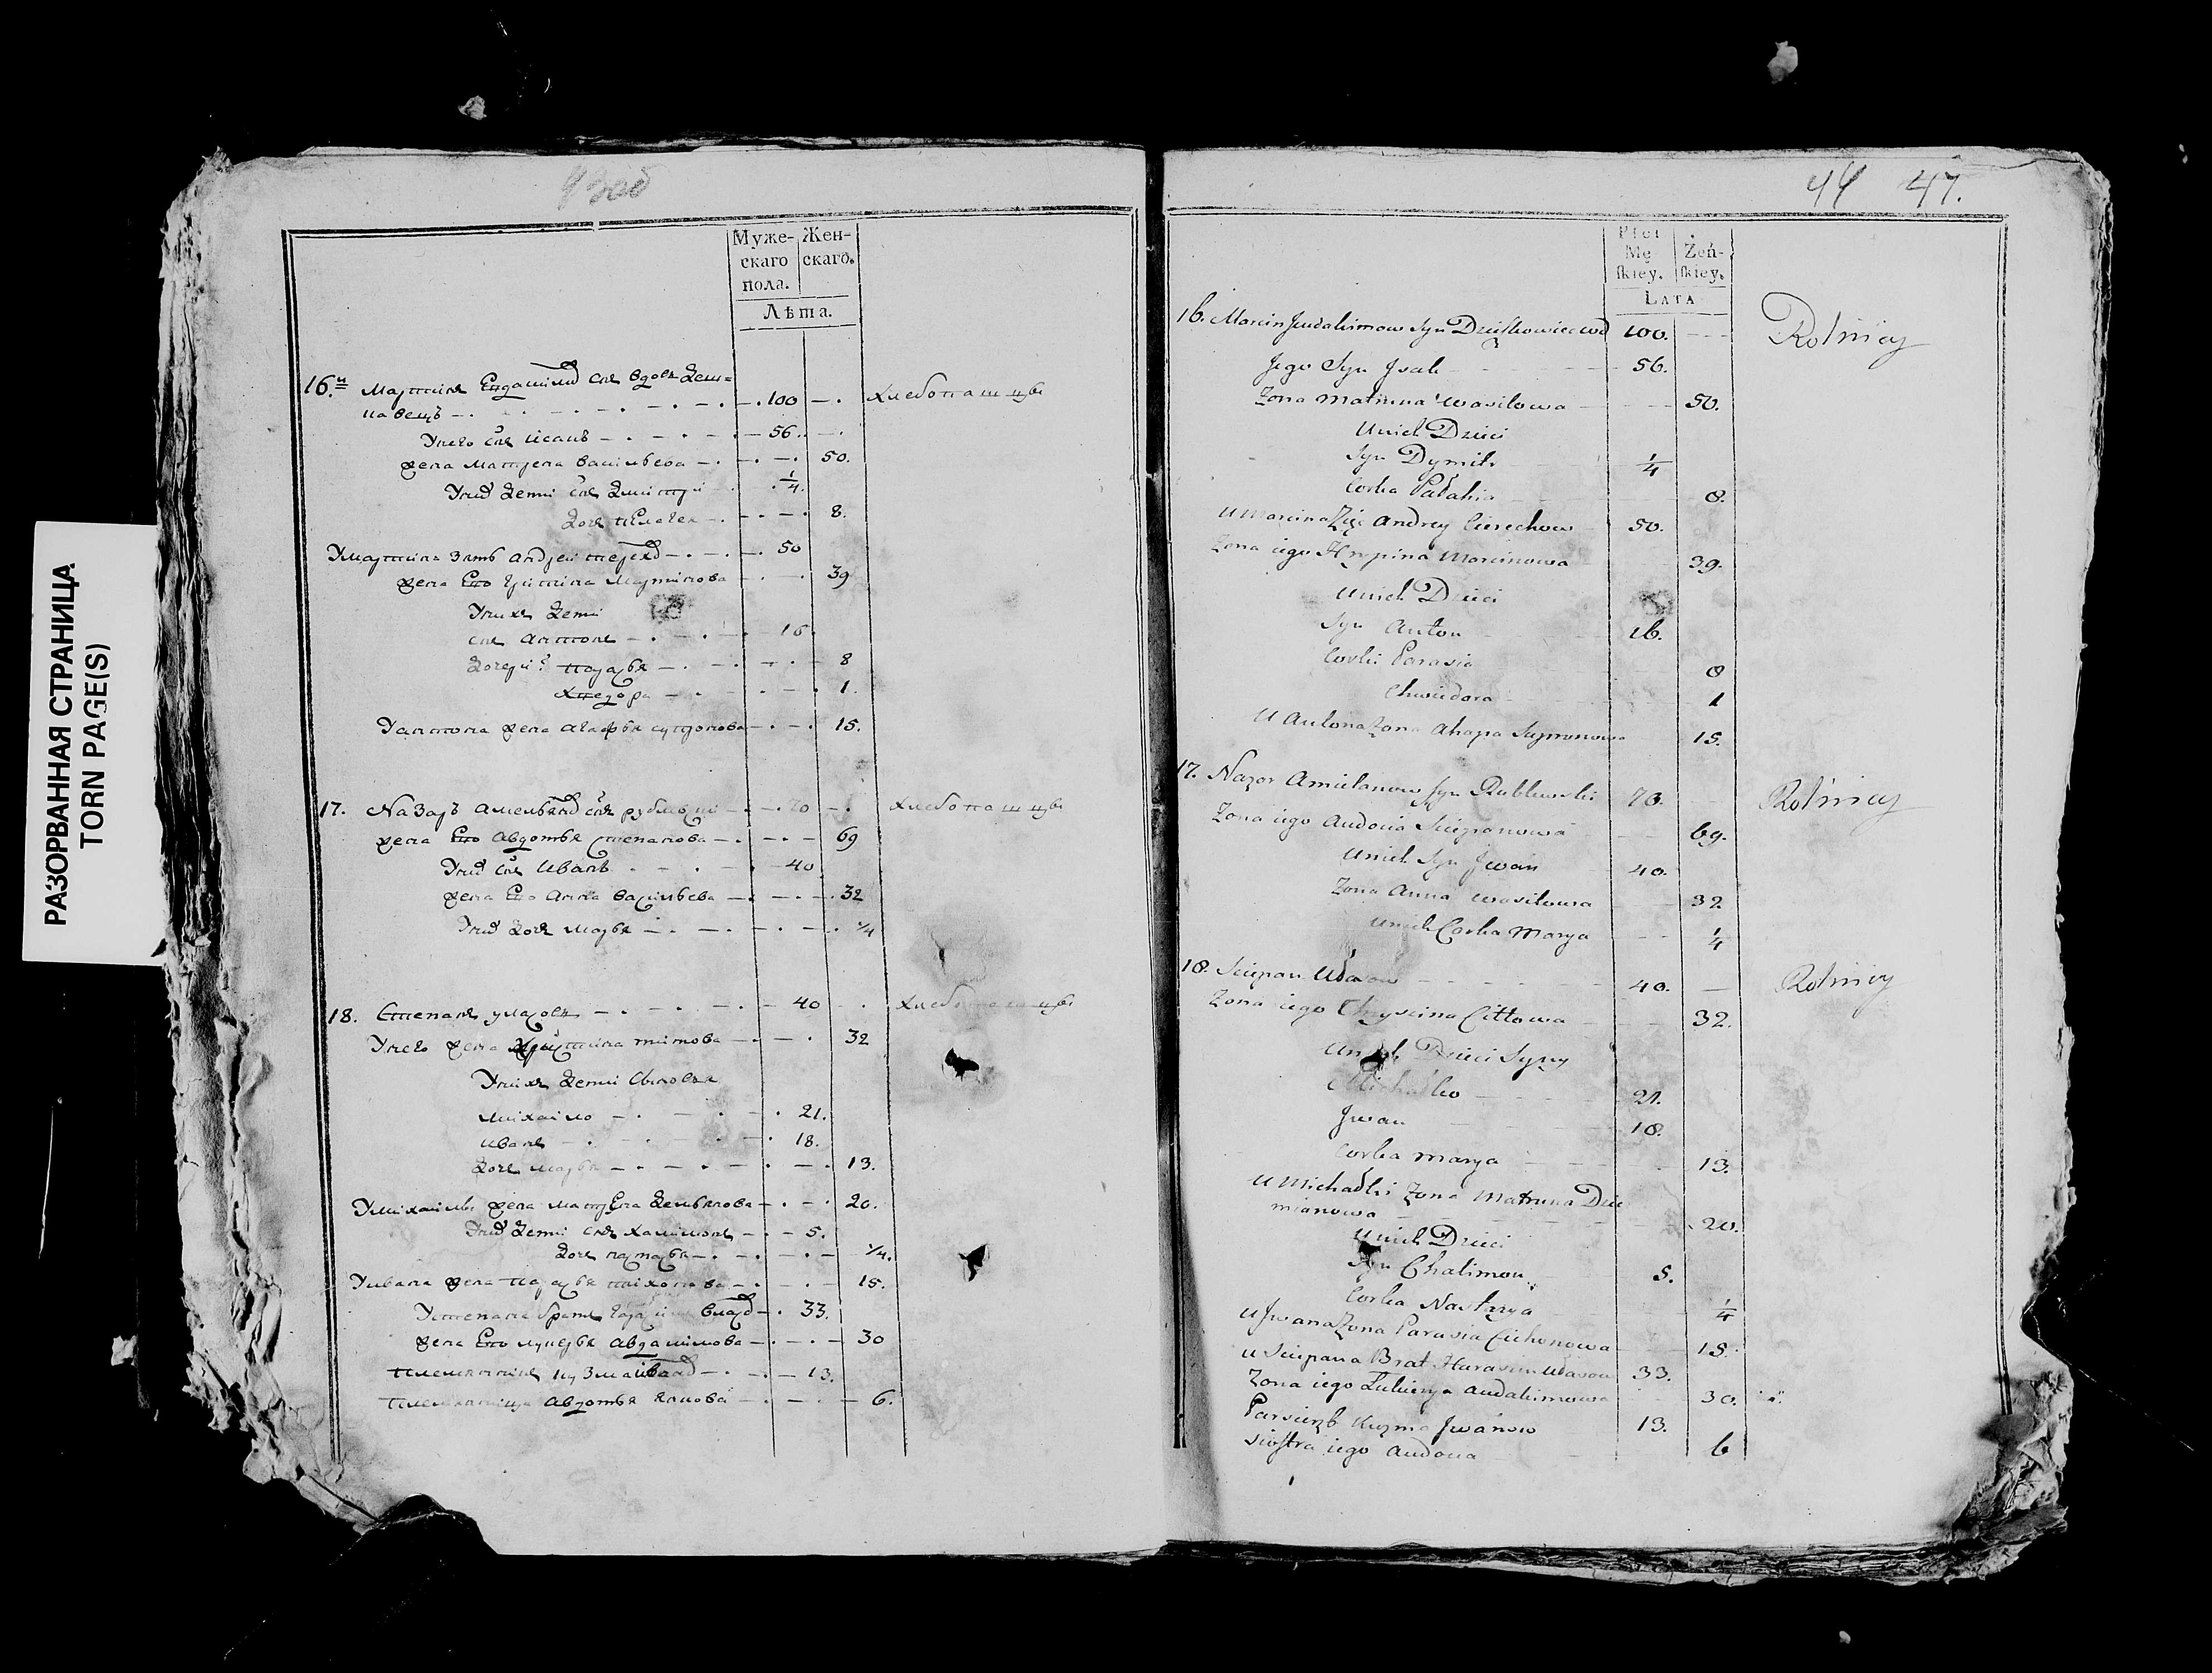 РАЗОРВАННАЯ СТРАНИЦА
TORN PAGE(S)
43 об
Муже- Жен-
скаго скаго.
пола.
Лѣта.
16. Мартинъ сынъ вдовъ
– 100 – хлебопашцы
У него сынъ Исакъ – 56. –
жена Матрена Васильева – 50.
У них дети сынъ Дмитри 1/4.
дочь Пелагея – 8.
У Мартина зять Андрей Терехов – 50
жена Его Мартинова – 39
У нихъ дети
сынъ Антонъ – 16
дочери: Парасья – 8
Хведора – 1.
У Антона жена Агафья – 15.
17. Назаръ Амельянов сынъ – 70 – хлебопашцы
жена Его Авдотья Степанова – 69
У них сынъ Иванъ – 40
жена Его Анна Васильева – 32
У них дочь Марья – 1/4
18. Степанъ – 40 хлебопашцы
У него жена Христина Титова – 32
У нихъ дети сыновья
Михайло – 21.
Иванъ – 18.
дочь Марья – 13.
У Михайлы жена Матрена Демьянова – 20.
У них дети сынъ Халимонъ – 5.
дочь – 1/4.
У Ивана жена Парасья Тихонова – 15.
У Степана братъ – 33.
жена Его Лукерья – 30
племянникъ Кузма Иванов – 13.
племянница Авдотья – 6.
44 47.
Płci
Mę- Żeń-
ſkiey. ſkiey.
LATA
16. Marcin Syn 100. Rolnicy
Jego Syn Jsak 56.
Zona Matruna Wasilowa 50.
U nich Dzieci
Syn Dymitr 1/4
Corka Pałahia 8.
U Marcina Zięć Andrey Cierechow 50.
Zona iego Hrypina Marcinowa 39.
U nich Dzieci
Syn Anton 16.
Corki Parasia 8
Chwiedora 1
U Antona Zona Ahapa Symonowa 15.
17. Nazor Amielanow Syn Rublewski 70. Rolnicy
Zona iego Audocia Sciepanowa 69.
U nich Syn Jwan 40.
Zona Anna Wasilowa 32
U nich Corka Marya 1/4
18. Sciepan Ułasow 40. Rolnicy
Zona iego Chryscina Cittowa 32.
U nich Dzieci Syny
Michałko 21.
Jwan 18.
Corka Marya 13.
U Michałki Zona Matruna Dzie
mianowa 20.
U nich Dzieci
Syn Chalimon 5.
Corka Nastazya 1/4
U Jwana Zona Parasia Cichonowa 15.
U Sciepana Brat Harasim Ułasow 33.
Zona iego Łukierya Audakimowa 30.
Parsierzb Kuzma Jwanow 13.
Siostra iego Audocia 6